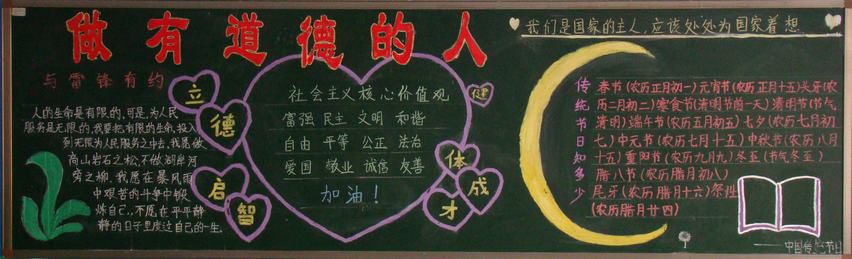 做有道德的人
我们是国家的主人,应该处处为国家着想
与雷锋有约
人的生命是有限的,可是,为人民
服务是无限的,我要把有限的生命,投入
到无限为人民服务之中去,我愿做
高山岩石之松,不做湖岸河
旁之柳,我愿在暴风雨
中艰苦的斗争中锻
炼自己,不愿在平平静
静的日子里度过自己的一生.
立
德
启
智
社会主义核心价值观
富强 民主 文明 和谐
自由 平等 公正 法治
爱国 敬业 诚信 友善
加油!
健
体
成
才
传统节日知多少
春节(农历正月初一)元宵节(农历正月十五)龙牙(农
历二月初二)寒食节(清明节前一天)清明节(节气
清明)端午节(农历五月初五)七夕(农历七月初
七)中元节(农历七月十五)中秋节(农历八月
十五)重阳节(农历九月九)冬至(节气冬至)
腊八节(农历腊月初八)
尾牙(农历腊月十六)祭灶
(农历腊月廿四)
——中国传统节日